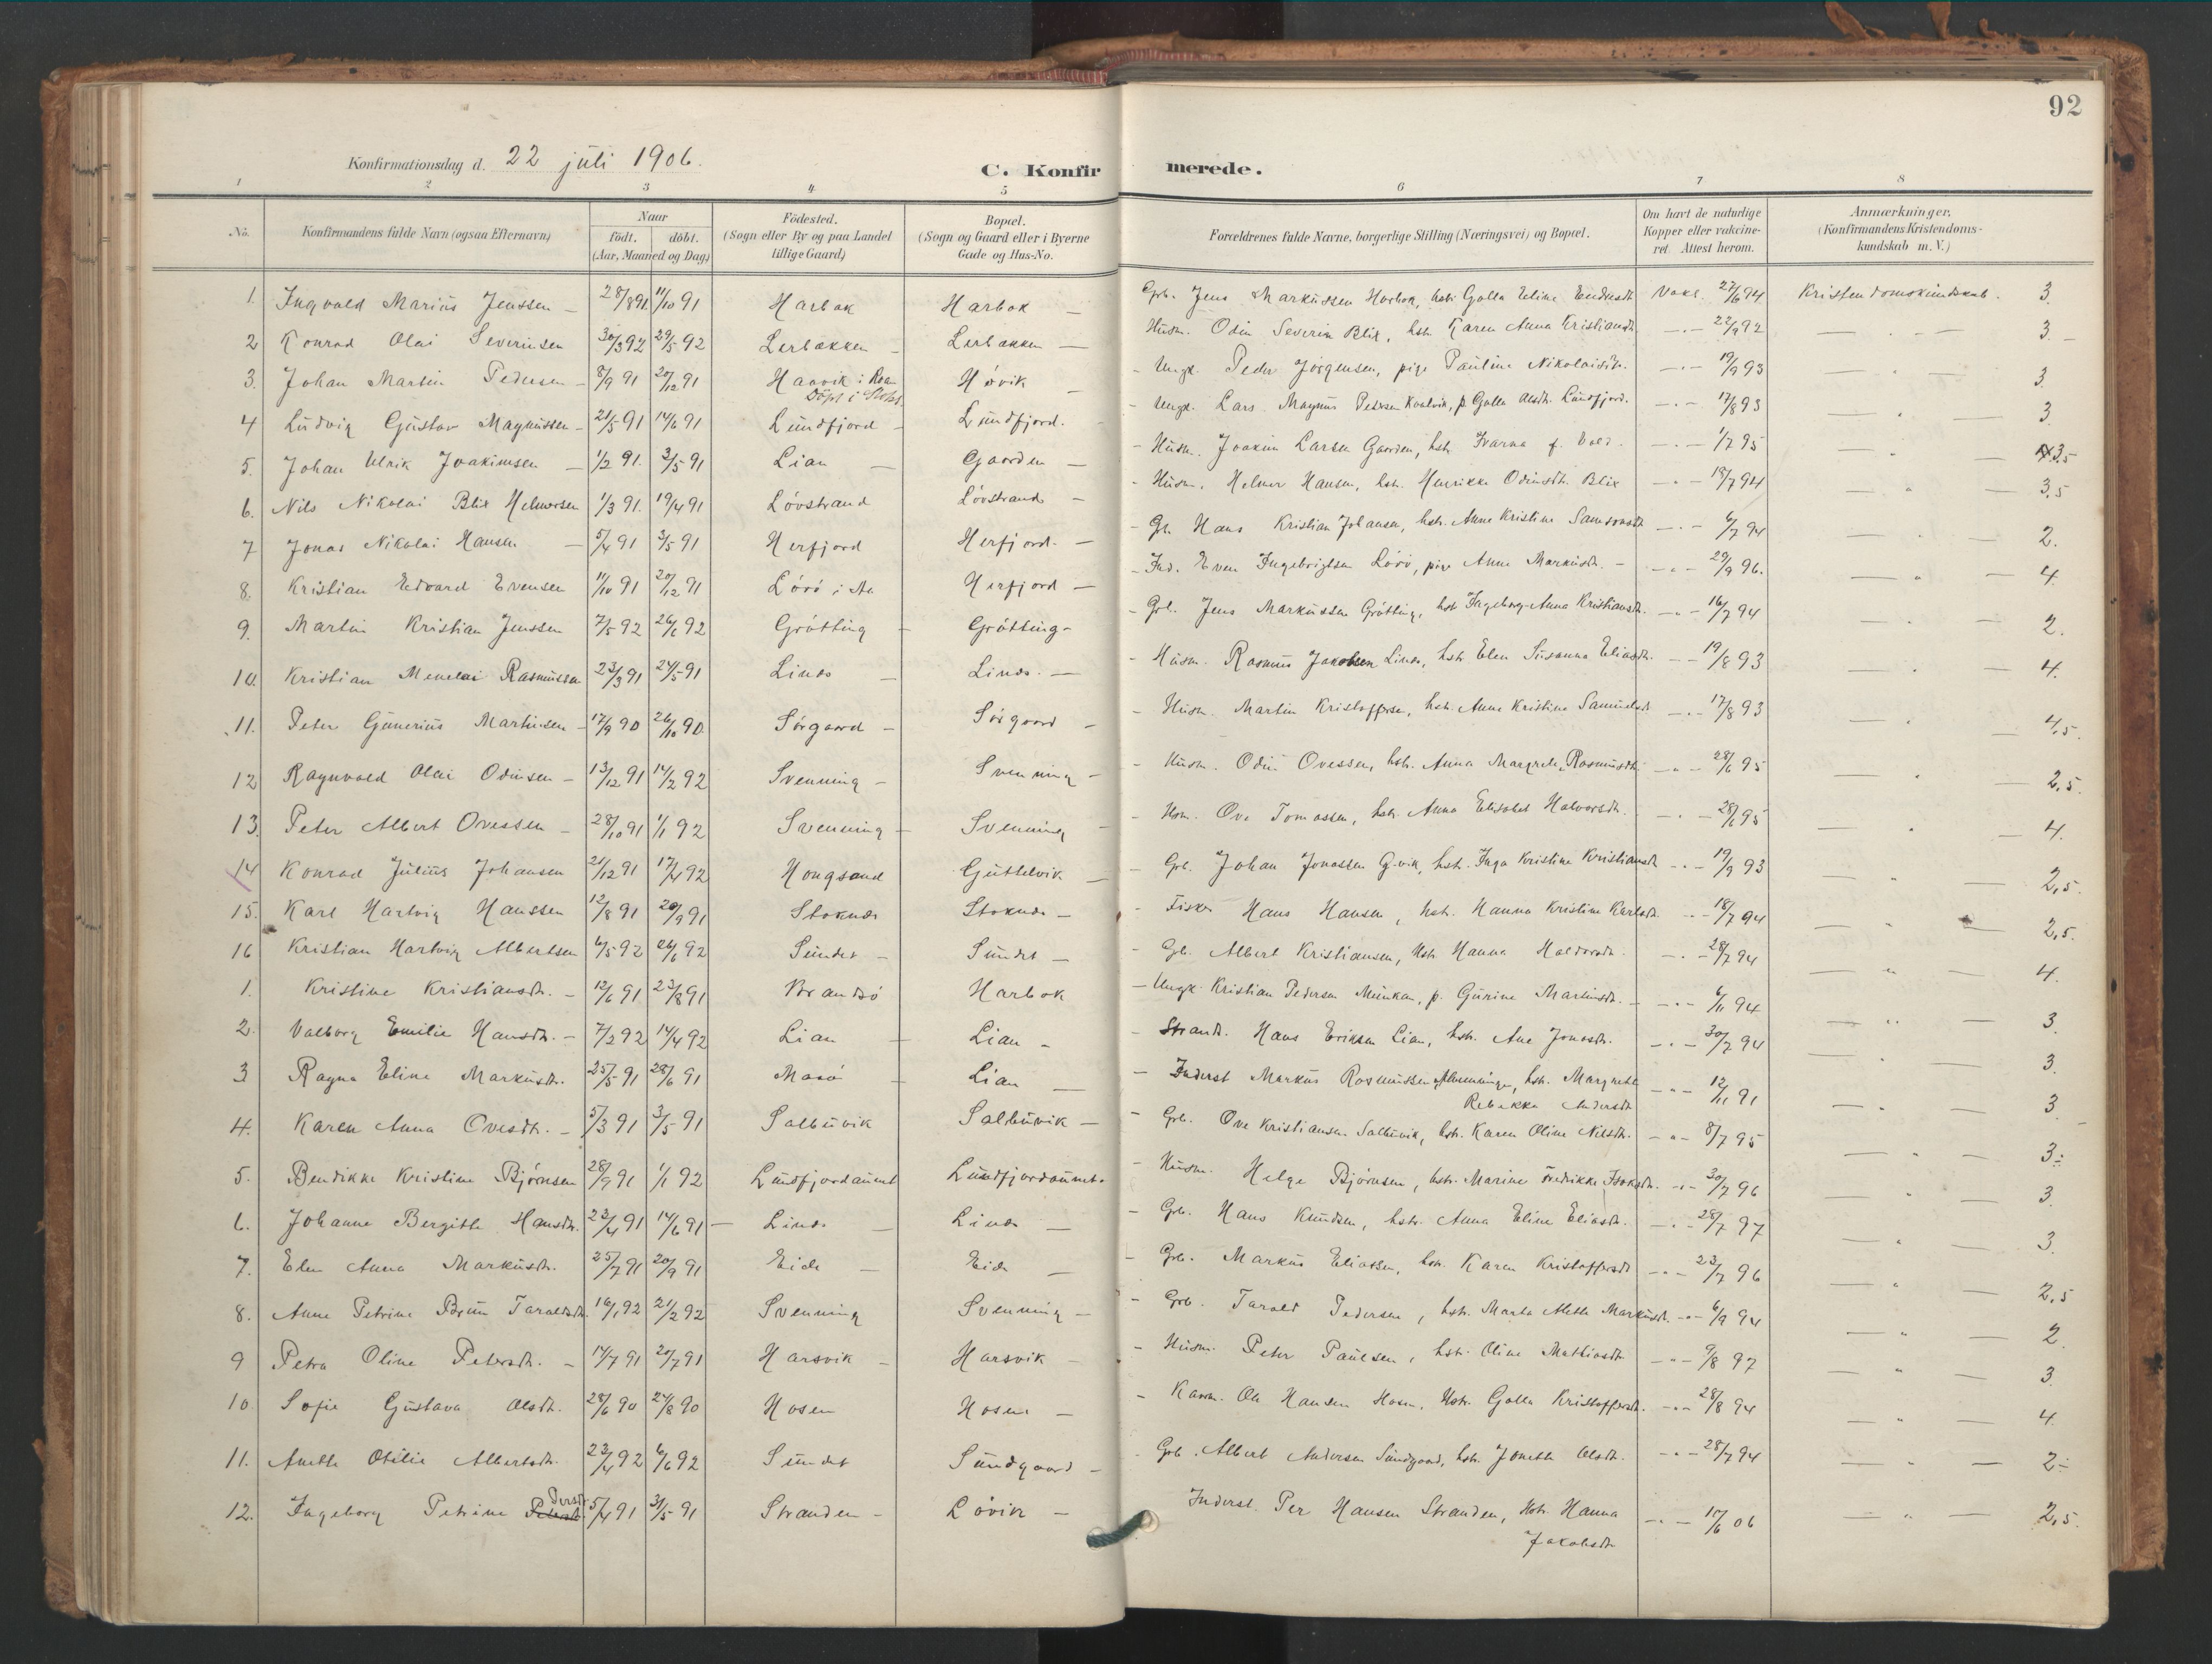 92
Konfirmationsdag d. 22 juli 1906.
C. Konfirmerede.
1 2 3 4 5 6 7 8
No. Konfirmandens fulde Navn (ogsaa Efternavn) Naar født. døbt. (Aar, Maaned og Dag) Födested. (Sogn eller By og paa Landet tillige Gaard) Bopæl. (Sogn og Gaard eller i Byerne Gade og Hus-No. Forældrenes fulde Navne, borgerlige Stilling (Næringsvei) og Bopæl. Om havt de naturlige Kopper eller vakcineret. Attest herom. Anmærkninger, (Konfirmandens Kristendomskundskab m. V.)
1. Ingvald Marius Jenssen – 28/8 91 11/10 91 Harbak Harbak – Grb. Jens Markussen Harbak, hstr Golla Eline Vakc. 27/6 94 Kristendomskundskab. 3.
2 Konrad Olai Severinsen 30/3 92 29/5 92 Lerbakken – Lerbakken – Husm. Odin Severin Blix, hst. Karen Anna Kristiansdtr. –"– 22/9 92 3.
3. Johan Martin Pedersen – 8/9 91 20/12 91 Haavik i Roan Döpt i Høvik – Ungk. Peder Jørgensen, pige Pauline Nikolaisdtr. –"– 19/9 93 3.
4 Ludvig Gustav Magnussen – 21/5 91 14/6 91 Lundfjord – Lundfjord. – Ungk. Lars Magnus Petersen, p. Golla Olsdtr. Lundfjord. –"– 17/8 93 3
5. Johan Ulrik Joakimsen – 1/2 91. 3/5 91 Lian – Gaarden – Husm. Joakim Larsen Gaarden, hstr. –"– 1/7 95 3,5
6. Nils Nikolai Blix Helmersen 1/3 91. 19/4 91 Lövstrand Lövstrand – Husm. Helmer Hansen, hst. Henrikke Odinsdtr. Blix –"– 18/7 94 3,5
7 Jonas Nikolai Hansen – 5/4 91 3/5 91 Herfjord Herfjord. – Gb. Hans Kristian Johansen, hstr. Anne Kristine –"– 6/7 94 2.
8. Kristian Edvard Evensen 11/10 91 20/12 91 Lövö i Aa Herfjord – Ind. Even Ingebrigtsen Lövö, pige Anne Markusdtr. – –"– 29/9 96. 4.
9. Martin Kristian Jenssen 7/5 92 26/6 92 Gråtting – Gråtting – Grb. Jens Markussen Gråtting, hst Ingeborg Anna Kristiansdtr. –"– 16/7 94 2.
10. Kristian Menelai Rasmussen 23/3 91 24/5 91 Linds – Linds. – Husm. Rasmus Jakobsen Linds, hstr Elen Susanna Eliasdtr. – 19/8 93 4.
11. Peter Gunerius Martinsen – 17/9 90 26/10 90. Sörgaard – Sörgaard – Husm. Martin Kristoffersen, hstr. Anne Kristine Samuelsdtr –"– 17/8 93 4,5.
12 Ragnvald Olai Odinsen – 13/12 91 14/2 92 Svenning – Svenning – Husm. Odin Ovessen, hstr. Anna Margrete Rasmusdtr. –"– 28/6 95 2,5.
13. Peter Albert Ovessen – 28/10 91 1/1 92 Svenning – Svenning – Hsm. Ove Tomassen, hstr. Anna Elisabet Halvorsdtr. –"– 28/6 95 4.
14 Konrad Julius Johansen 21/12 91 17/4 92 Hongsand Guttelvik – Grb. Johan Jonassen G.vik, hst. Inga Kristine Kristiansdtr –"– 19/9 93 2,5.
15. Karl Hartvig Hanssen 12/8 91 20/9 91 Stoknds Stoknds – Fisker Hans Hansen, hstr. Hanna Kristine Karlsdtr. –"– 18/7 94 2,5.
16 Kristian Hartvig Albertsen 6/5 92 26/6 92 Sundet – Sundet – Gb. Albert Kristiansen, Hstr. Hanna Haldorsdtr. –"– 28/7 94 4.
1. Kristine Kristiansdtr. – 12/6 91 23/8 91 Brandsö Harbak – Ungk. Kristian Pedersen Munkan, p. Gurine Martinsdtr. – –"– 6/11 94 3.
2. Valborg Emilie Hansdtr. – 7/2 92 14/4 92 Lian – Lian – Strands. Hans Eriksen Lian, hst. Ane Jonasdtr. –"– 30/7 94 3.
3 Ragna Eline Markusdtr. 25/5 91 28/6 91 Masö – Lian – Inderst Markus Rasmussen, hst. Margrete Rebekka Andersdtr –"– 12/11 91 3.
4. Karen Anna Ovesdtr. – 5/3 91 3/5 91 Salbuvik Salbuvik – Grb. Ove Kristiansen Salbuvik, hstr. Karen Oline Nilsdtr. –"– 8/7 95 3÷
5. Bendikke Kristine Björnsen 28/9 91 1/1 92 Lundfjordaunet Lundfjordaunet. – Husm. Helge Björnsen, hstr. Marine Fredrikke Isaksdtr. –"– 30/7 96 3.
6. Johanna Bergitte Hansdtr. 23/4 91 14/6 91 – Linds – Linds – Grb. Hans Knudsen, hstr. Anna Eline Eliasdtr. –"– 28/7 97 3.
7. Elen Anna Markusdtr. 25/7 91 20/9 91 Eide – Eide – Grb. Markus Eliassen, hst. Karen Kristoffersdtr –"– 23/7 96 2,5
8. Anne Petrine Brun Taraldsdtr. 16/1 92 21/2 92 Svenning Svenning – Grb. Tarald Pedersen, hstr. Marta Aletta Markusdtr. –"– 6/9 94 2.
9 Petra Oline Petersdtr. – 14/7 91 20/7 91 Harsvik – Harsvik – Husm. Peter Paulsen, hst. Oline Mathiasdtr. –"– 9/8 97 3.
10 Sofie Gustava Olsdtr. 28/6 90 24/8 90 Hosen Hosen – Kaarm. Ola Hansen Hosen, Hstr. Golla Kristoffersdtr. –"– 28/8 94 4.
11. Anette Otilie Albertsdtr. 23/4 92 6/6 92 Sundet Sundgaard – Grb. Albert Andersen Sundgaard, hst. Jonetta Olsdtr. –"– 28/7 94 2÷
12. Ingeborg Petrine Persdtr 5/4 91 31/5 91 Stranden – Lövik – Inderst. Per Hansen Stranden, Hstr. Hanna Jakobsdtr –"– 15/6 06 2,5.